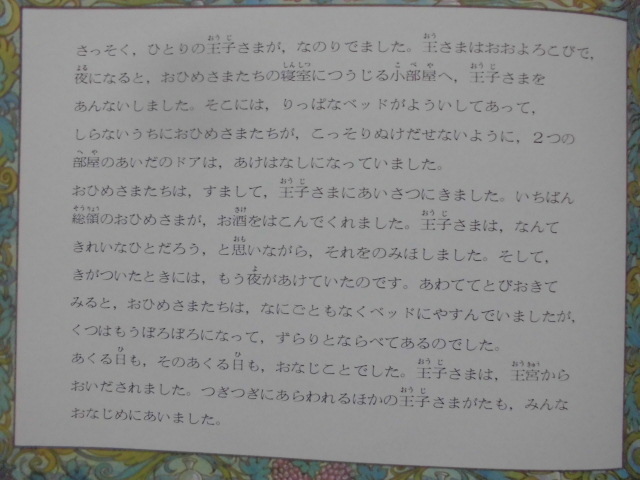 さっそく，ひとりの王子さまが，なのりでました。王さまはおおよろこびで，
夜になると，おひめさまたちの寝室につうじる小部屋へ，王子さまを
あんないしました。そこには，りっぱなベッドがよういしてあって，
しらないうちにおひめさまたちが，こっそりぬけだせないように，２つの
部屋のあいだのドアは，あけはなしになっていました。
おひめさまたちは，すまして，王子さまにあいさつにきました。いちばん
総領のおひめさまが，お酒をはこんでくれました。王子さまは，なんて
きれいなひとだろう，と思いながら，それをのみほしました。そして，
きがついたときには，もう夜があけていたのです。あわててとびおきて
みると，おひめさまたちは，なにごともなくベッドにやすんでいましたが，
くつはもうぼろぼろになって，ずらりとならべてあるのでした。
あくる日も，そのあくる日も，おなじことでした。王子さまは，王宮から
おいだされました。つぎつぎにあらわれるほかの王子さまがたも，みんな
おなじめにあいました。